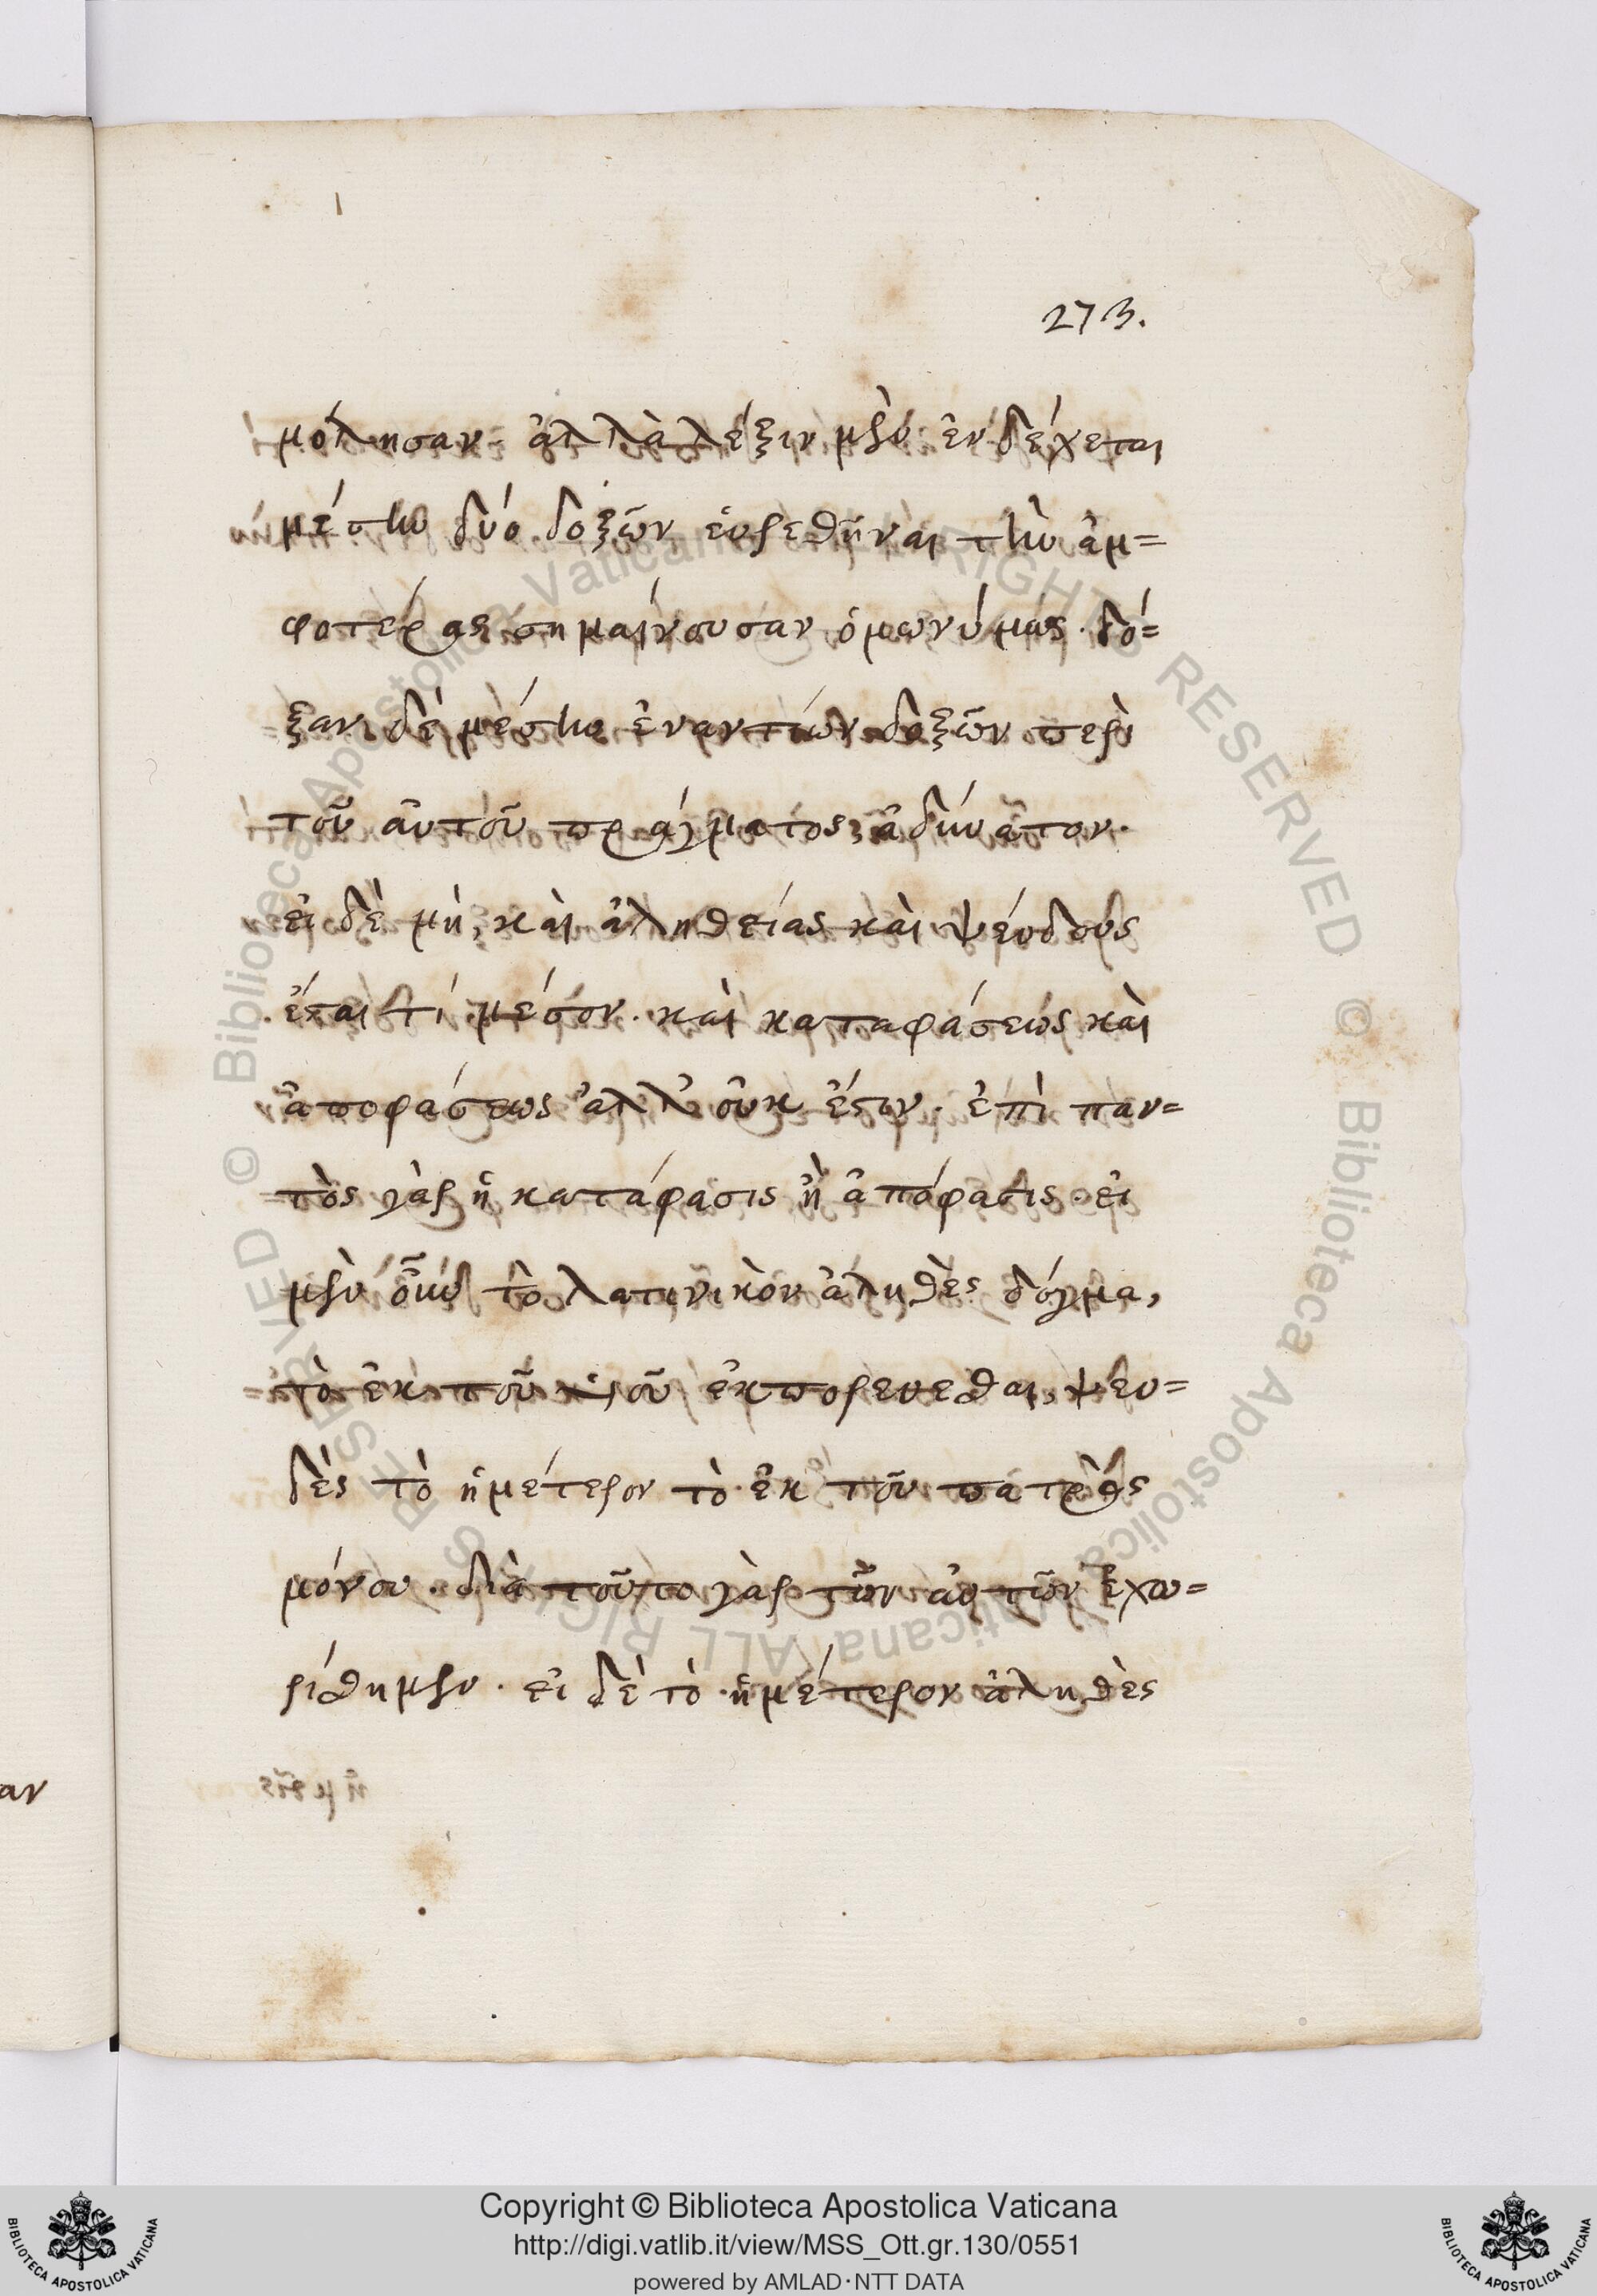 273.
μόλησαν. ἀλλὰ λέξιν μὲν ἐνδέχεται
μέσην δύο δοξῶν εὑρεθῆναι τὴν ἀμ=
φοτέρας σημαίνουσαν ὁμωνύμως. δό=
ξαν δὲ μέσην ἐναντίων δοξῶν περὶ
τοῦ αὐτοῦ πράγματος, ἀδύνατον.
εἰ δὲ μὴ, καὶ ἀληθείας καὶ ψεύδους
ἔσται τί μέσον. καὶ καταφάσεως καὶ
ἀποφάσεως ἀλλ' οὐκ ἔστιν. ἐπὶ παν=
τὸς γὰρ ἢ κατάφασις ἢ ἀπόφασις. εἰ
μὲν οὖν τὸ λατινικὸν ἀληθὲς δόγμα,
τὸ ἐκ τοῦ υἱοῦ ἐκπορεύεσθαι, ψευ=
δὲς τὸ ἡμέτερον τὸ ἐκ τοῦ πατρὸς
μόνου. διὰ τοῦτο γὰρ τῶν αὐτῶν ἐχω=
ρίσθημεν. εἰ δὲ τὸ ἡμέτερον ἀληθὲς
αν
© Biblioteca Apostolica Vaticana ALL RIGHTS RESERVED © Biblioteca Apostolica Vaticana ALL RIGHTS RESERVED
Copyright © Biblioteca Apostolica Vaticana
http://digi.vatlib.it/view/MSS_Ott.gr.130/0551
powered by AMLAD·NTT DATA
BIBLIOTECA APOSTOLICA VATICANA
BIBLIOTECA APOSTOLICA VATICANA